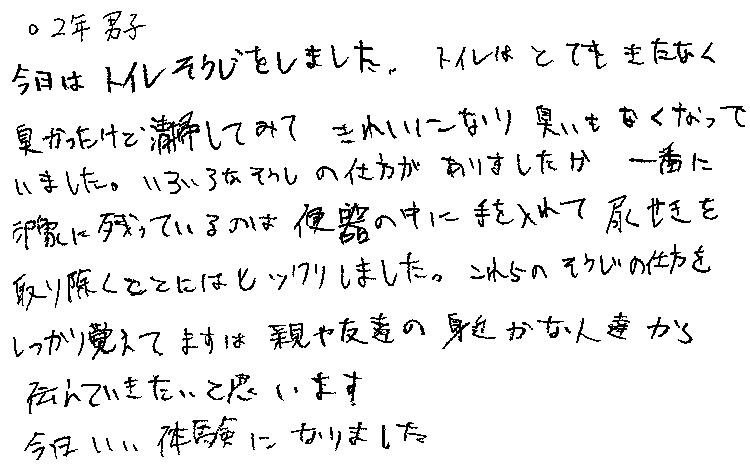 ○ 2年 男子
今日は トイレそうじをしました。 トイレは とても きたなく
臭かったけど 清掃してみて きれいになり 臭いも なくなって
いました。いろいろなそうじ の仕方が ありましたが 一番に
印象に 残っているのは 便器の中に 手を入れて 尿せきを
取り除くことにはビックリしました。これらのそうじの仕方を
しっかり覚えて まずは 親や友達の 身近かな人達 から
伝えていきたいと思います
今日いい 体験に なりました